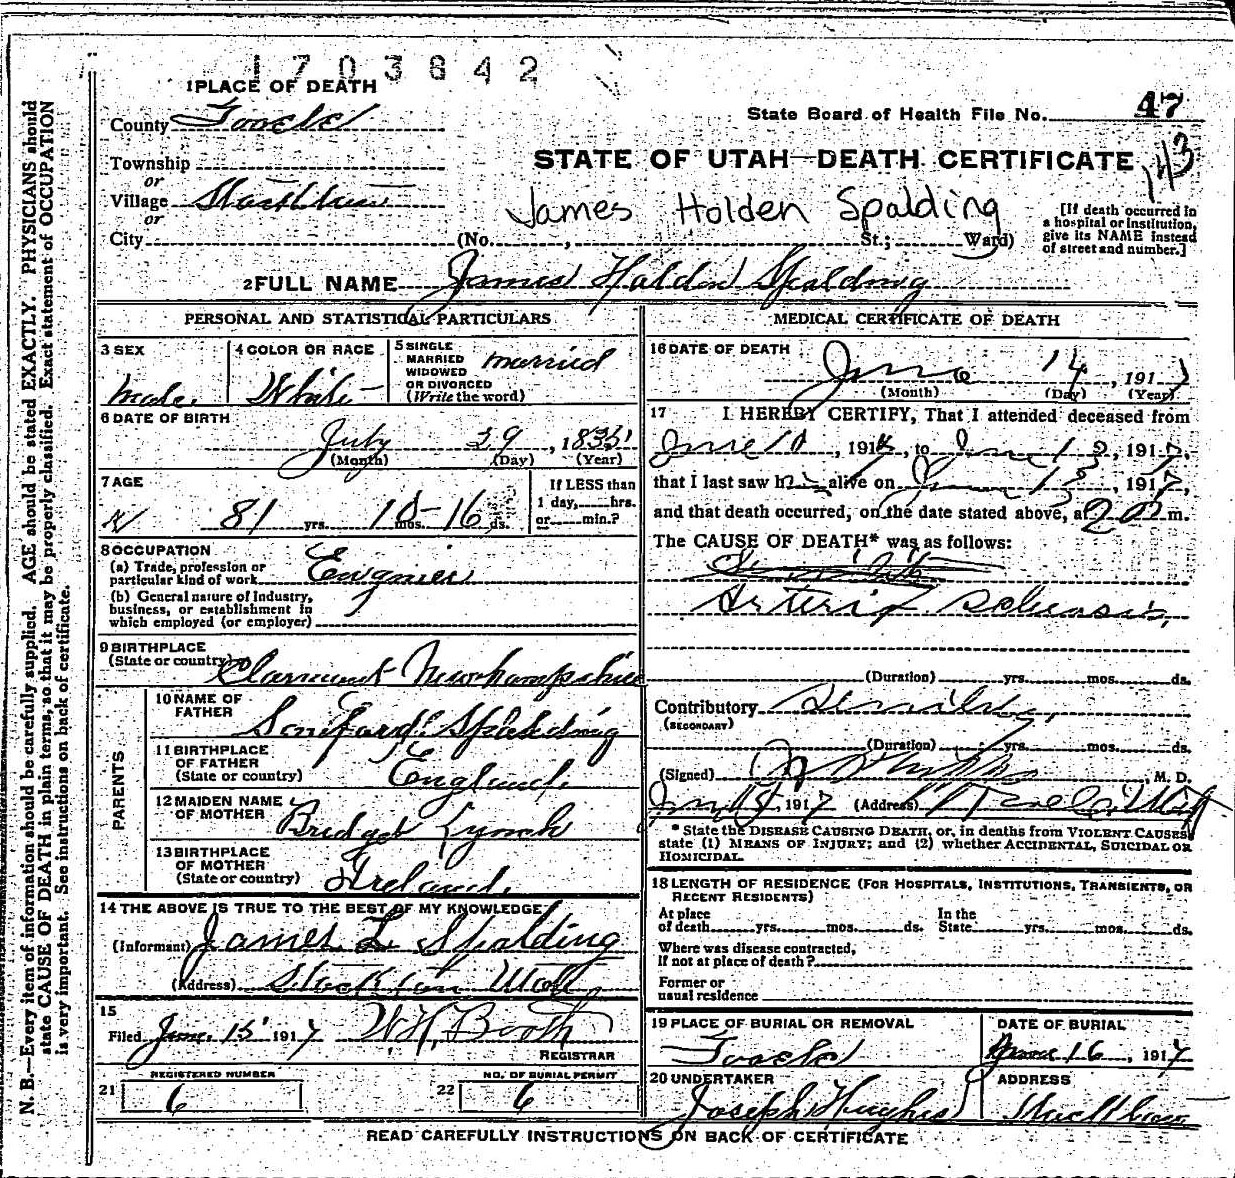 1703842
1 PLACE OF DEATH
State Board of Health File No. 47
County Tooele
143
STATE OF UTAH—DEATH CERTIFICATE
Township
or
Village Stockton
or
James Holden Spalding
[If death occurred in
a hospital or institution,
give its NAME instead
of street and number.]
City (No. , St.; Ward)
2 FULL NAME James Holden Spalding
PERSONAL AND STATISTICAL PARTICULARS
3 SEX
Male
4 COLOR OR RACE
White
5 SINGLE
MARRIED
WIDOWED
OR DIVORCED
(Write the word)
married
6 DATE OF BIRTH
July 29, 1835
(Month) (Day) (Year)
7 AGE
81 yrs. 10 mos. 16 ds.
If LESS than
1 day, hrs.
or min.?
8 OCCUPATION
(a) Trade, profession or
particular kind of work Engineer
(b) General nature of Industry,
business, or establishment in
which employed (or employer)
9 BIRTHPLACE
(State or country) Claremont Newhampshire
PARENTS
10 NAME OF
FATHER
Spalding
11 BIRTHPLACE
OF FATHER
(State or country)
England.
12 MAIDEN NAME
OF MOTHER
Bridget Lynch
13 BIRTHPLACE
OF MOTHER
(State or country)
Ireland.
14 THE ABOVE IS TRUE TO THE BEST OF MY KNOWLEDGE
(Informant) James L Spalding
(Address) Stockton Utah
15
Filed June 15 1917 W.H. Booth
REGISTRAR
REGISTERED NUMBER
21 6
NO. OF BURIAL PERMIT
22 6
MEDICAL CERTIFICATE OF DEATH
16 DATE OF DEATH
June 14, 1917
(Month) (Day) (Year)
17 I HEREBY CERTIFY, That I attended deceased from
June 10, 1917, to June 13, 1917,
that I last saw him alive on June 13, 1917,
and that death occurred, on the date stated above, at m.
The CAUSE OF DEATH* was as follows:
Arterio Sclerosis,
(Duration) yrs. mos. ds.
Contributory Senility,
(SECONDARY)
(Duration) yrs. mos. ds.
(Signed) , M. D.
1917 (Address) Tooele, Utah
* State the DISEASE CAUSING DEATH, or, in deaths from VIOLENT CAUSES,
state (1) MEANS OF INJURY; and (2) whether ACCIDENTAL, SUICIDAL OR
HOMICIDAL.
18 LENGTH OF RESIDENCE (FOR HOSPITALS, INSTITUTIONS, TRANSIENTS, OR
RECENT RESIDENTS)
At place
of death yrs. mos. ds.
In the
State yrs. mos. ds.
Where was disease contracted,
If not at place of death?
Former or
usual residence
19 PLACE OF BURIAL OR REMOVAL
Tooele
DATE OF BURIAL
June 16, 1917
20 UNDERTAKER
Joseph Hughes
ADDRESS
Stockton
READ CAREFULLY INSTRUCTIONS ON BACK OF CERTIFICATE
N. B.—Every item of information should be carefully supplied. AGE should be stated EXACTLY. PHYSICIANS should
state CAUSE OF DEATH in plain terms, so that it may be properly classified. Exact statement of OCCUPATION
is very important. See instructions on back of certificate.